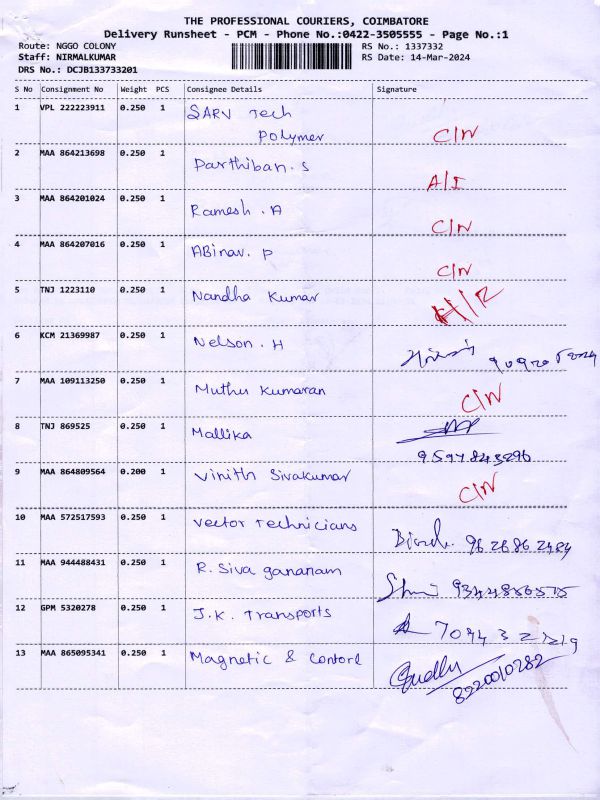 THE PROFESSIONAL COURIERS, COIMBATORE
Delivery Runsheet - PCM - Phone No.:0422-3505555 - Page No.:1
Route: NGGO COLONY RS No.: 1337332
Staff: NIRMALKUMAR RS Date: 14-Mar-2024
DRS No.: DCJB133733201
S No Consignment No Weight PCS Consignee Details Signature
1 VPL 222223911 0.250 1 SARV Tech
Polymer C/N
2 MAA 864213698 0.250 1 Parthiban. S
A/I
3 MAA 864201024 0.250 1 Ramesh. A
C/N
4 MAA 864207016 0.250 1 ABinav. P
C/N
5 TNJ 1223110 0.250 1 Nandha Kumar
6 KCM 21369987 0.250 1 Nelson. H
7 MAA 109113250 0.250 1 Muthu Kumaran C/N
8 TNJ 869525 0.250 1 Mallika
9 MAA 864809564 0.200 1 Vinith Sivakumar C/N
10 MAA 572517593 0.250 1 Vector Technicians
11 MAA 944488431 0.250 1 R. Siva gananam
12 GPM 5320278 0.250 1 J.K. Transports
13 MAA 865095341 0.250 1 Magnetic & Contorl
8220010282